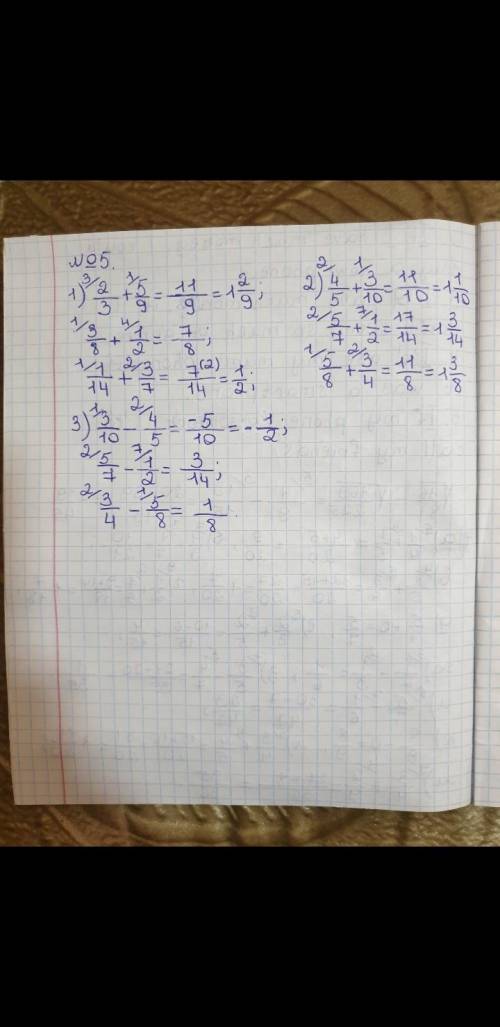 №5.
1) ³⁄ 2/3 + ¹⁄ 5/9 = 11/9 = 1 2/9;
¹⁄ 3/8 + ⁴⁄ 1/2 = 7/8;
¹⁄ 1/14 + ²⁄ 3/7 = 7⁽²⁾/14 = 1/2;
3) ¹⁄ 3/10 - ²⁄ 4/5 = -5/10 = - 1/2;
²⁄ 5/7 - ⁷⁄ 1/2 = 3/14;
²⁄ 3/4 - ¹⁄ 5/8 = 1/8.
2) ²⁄ 4/5 + ¹⁄ 3/10 = 11/10 = 1 1/10
²⁄ 5/7 + ⁷⁄ 1/2 = 17/14 = 1 3/14
¹⁄ 5/8 + ²⁄ 3/4 = 11/8 = 1 3/8